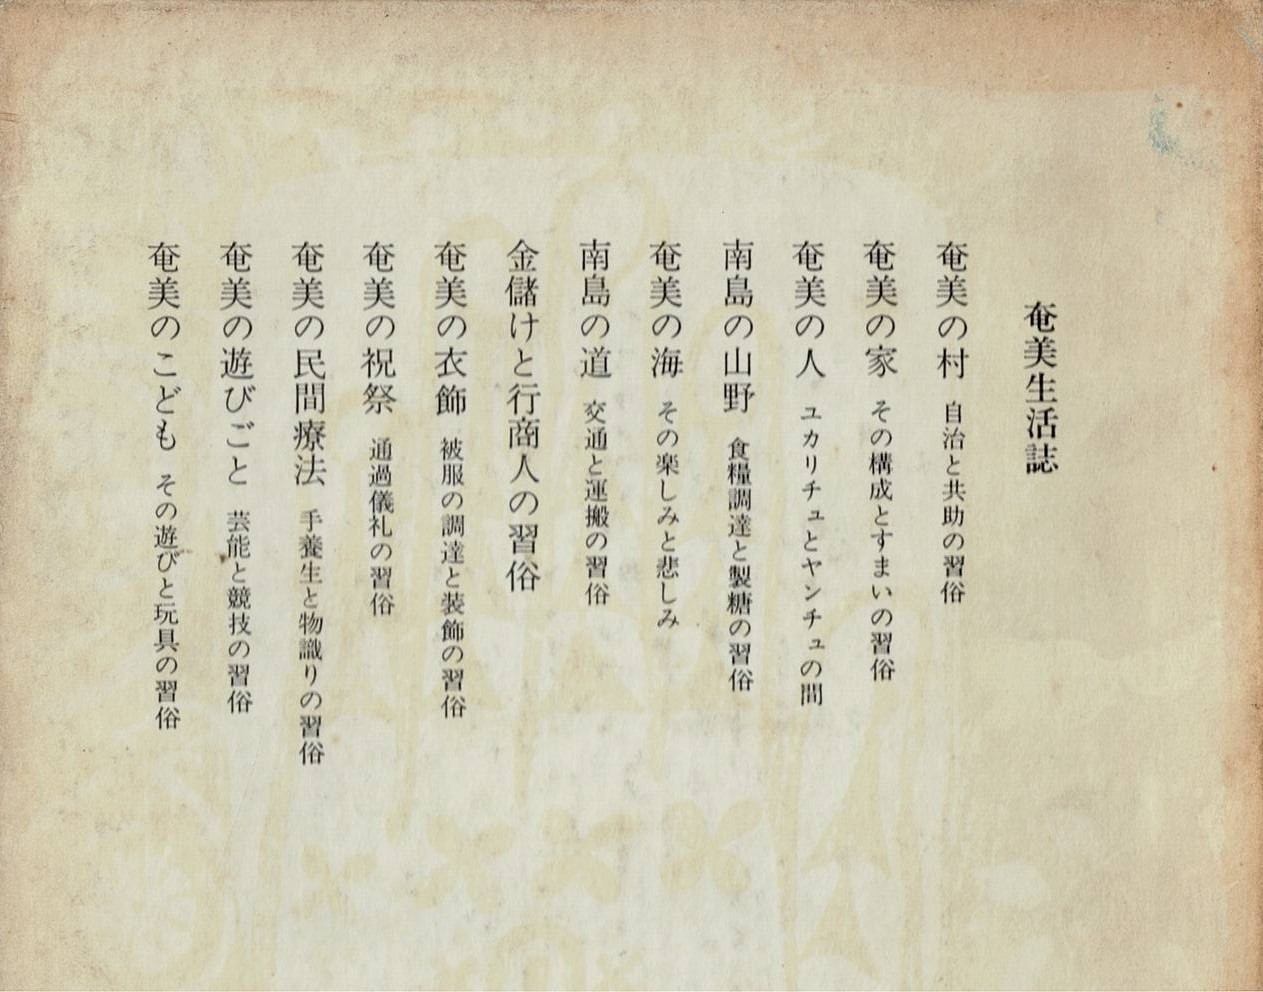 奄美生活誌
奄美の村 自治と共助の習俗
奄美の家 その構成とすまいの習俗
奄美の人 ユカリチュとヤンチュの間
南島の山野 食糧調達と製糖の習俗
奄美の海 その楽しみと悲しみ
南島の道 交通と運搬の習俗
金儲けと行商人の習俗
奄美の衣飾 被服の調達と装飾の習俗
奄美の祝祭 通過儀礼の習俗
奄美の民間療法 手養生と物識りの習俗
奄美の遊びごと 芸能と競技の習俗
奄美のこども その遊びと玩具の習俗